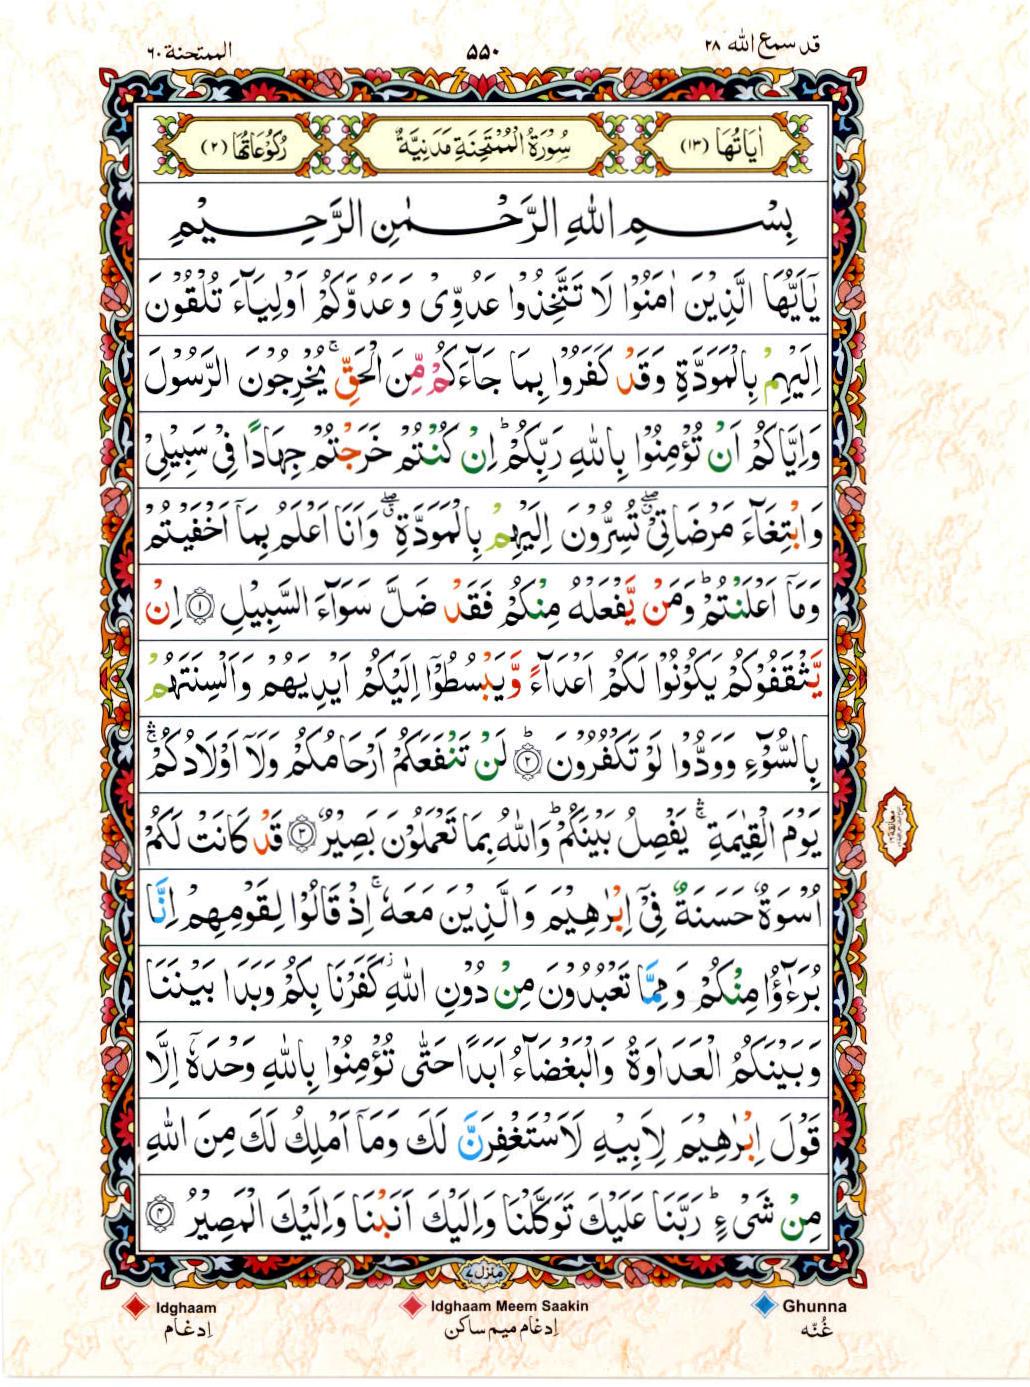 قد سمع الله ٢٨
٥٥٠
الممتحنة ٦٠
اٰيَاتُهَا (١٣)
سُوْرَةُ الْمُمْتَحِنَةِ مَدَنِيَّةٌ
رُكُوْعَاتُهَا (٢)
بِسْمِ اللهِ الرَّحْمٰنِ الرَّحِيْمِ
يٰٓاَيُّهَا الَّذِيْنَ اٰمَنُوْا لَا تَتَّخِذُوْا عَدُوِّىْ وَعَدُوَّكُمْ اَوْلِيَآءَ تُلْقُوْنَ
اِلَيْهِمْ بِالْمَوَدَّةِ وَقَدْ كَفَرُوْا بِمَا جَآءَكُمْ مِّنَ الْحَقِّ ۚ يُخْرِجُوْنَ الرَّسُوْلَ
وَاِيَّاكُمْ اَنْ تُؤْمِنُوْا بِاللهِ رَبِّكُمْ ؕ اِنْ كُنْتُمْ خَرَجْتُمْ جِهَادًا فِىْ سَبِيْلِىْ
وَابْتِغَآءَ مَرْضَاتِىْ ۖ تُسِرُّوْنَ اِلَيْهِمْ بِالْمَوَدَّةِ ۖ وَاَنَا اَعْلَمُ بِمَاۤ اَخْفَيْتُمْ
وَمَاۤ اَعْلَنْتُمْ ؕ وَمَنْ يَّفْعَلْهُ مِنْكُمْ فَقَدْ ضَلَّ سَوَآءَ السَّبِيْلِ ﴿١﴾ اِنْ
يَّثْقَفُوْكُمْ يَكُوْنُوْا لَكُمْ اَعْدَآءً وَّيَبْسُطُوْۤا اِلَيْكُمْ اَيْدِيَهُمْ وَاَلْسِنَتَهُمْ
بِالسُّوْٓءِ وَوَدُّوْا لَوْ تَكْفُرُوْنَ ؕ﴿٢﴾ لَنْ تَنْفَعَكُمْ اَرْحَامُكُمْ وَلَاۤ اَوْلَادُكُمْ ۛۚ
يَوْمَ الْقِيٰمَةِ ۛۚ يَفْصِلُ بَيْنَكُمْ ؕ وَاللهُ بِمَا تَعْمَلُوْنَ بَصِيْرٌ ﴿٣﴾ قَدْ كَانَتْ لَكُمْ
اُسْوَةٌ حَسَنَةٌ فِىْۤ اِبْرٰهِيْمَ وَالَّذِيْنَ مَعَهٗ ۚ اِذْ قَالُوْا لِقَوْمِهِمْ اِنَّا
بُرَءٰٓؤُا مِنْكُمْ وَمِمَّا تَعْبُدُوْنَ مِنْ دُوْنِ اللهِ ۫ كَفَرْنَا بِكُمْ وَبَدَا بَيْنَنَا
وَبَيْنَكُمُ الْعَدَاوَةُ وَالْبَغْضَآءُ اَبَدًا حَتّٰى تُؤْمِنُوْا بِاللهِ وَحْدَهٗۤ اِلَّا
قَوْلَ اِبْرٰهِيْمَ لِاَبِيْهِ لَاَسْتَغْفِرَنَّ لَكَ وَمَاۤ اَمْلِكُ لَكَ مِنَ اللهِ
مِنْ شَىْءٍ ؕ رَبَّنَا عَلَيْكَ تَوَكَّلْنَا وَاِلَيْكَ اَنَبْنَا وَاِلَيْكَ الْمَصِيْرُ ﴿٤﴾
منزل ٧
Idghaam
Idghaam Meem Saakin
Ghunna
اِدغام
اِدغام میم ساکن
غُنّه